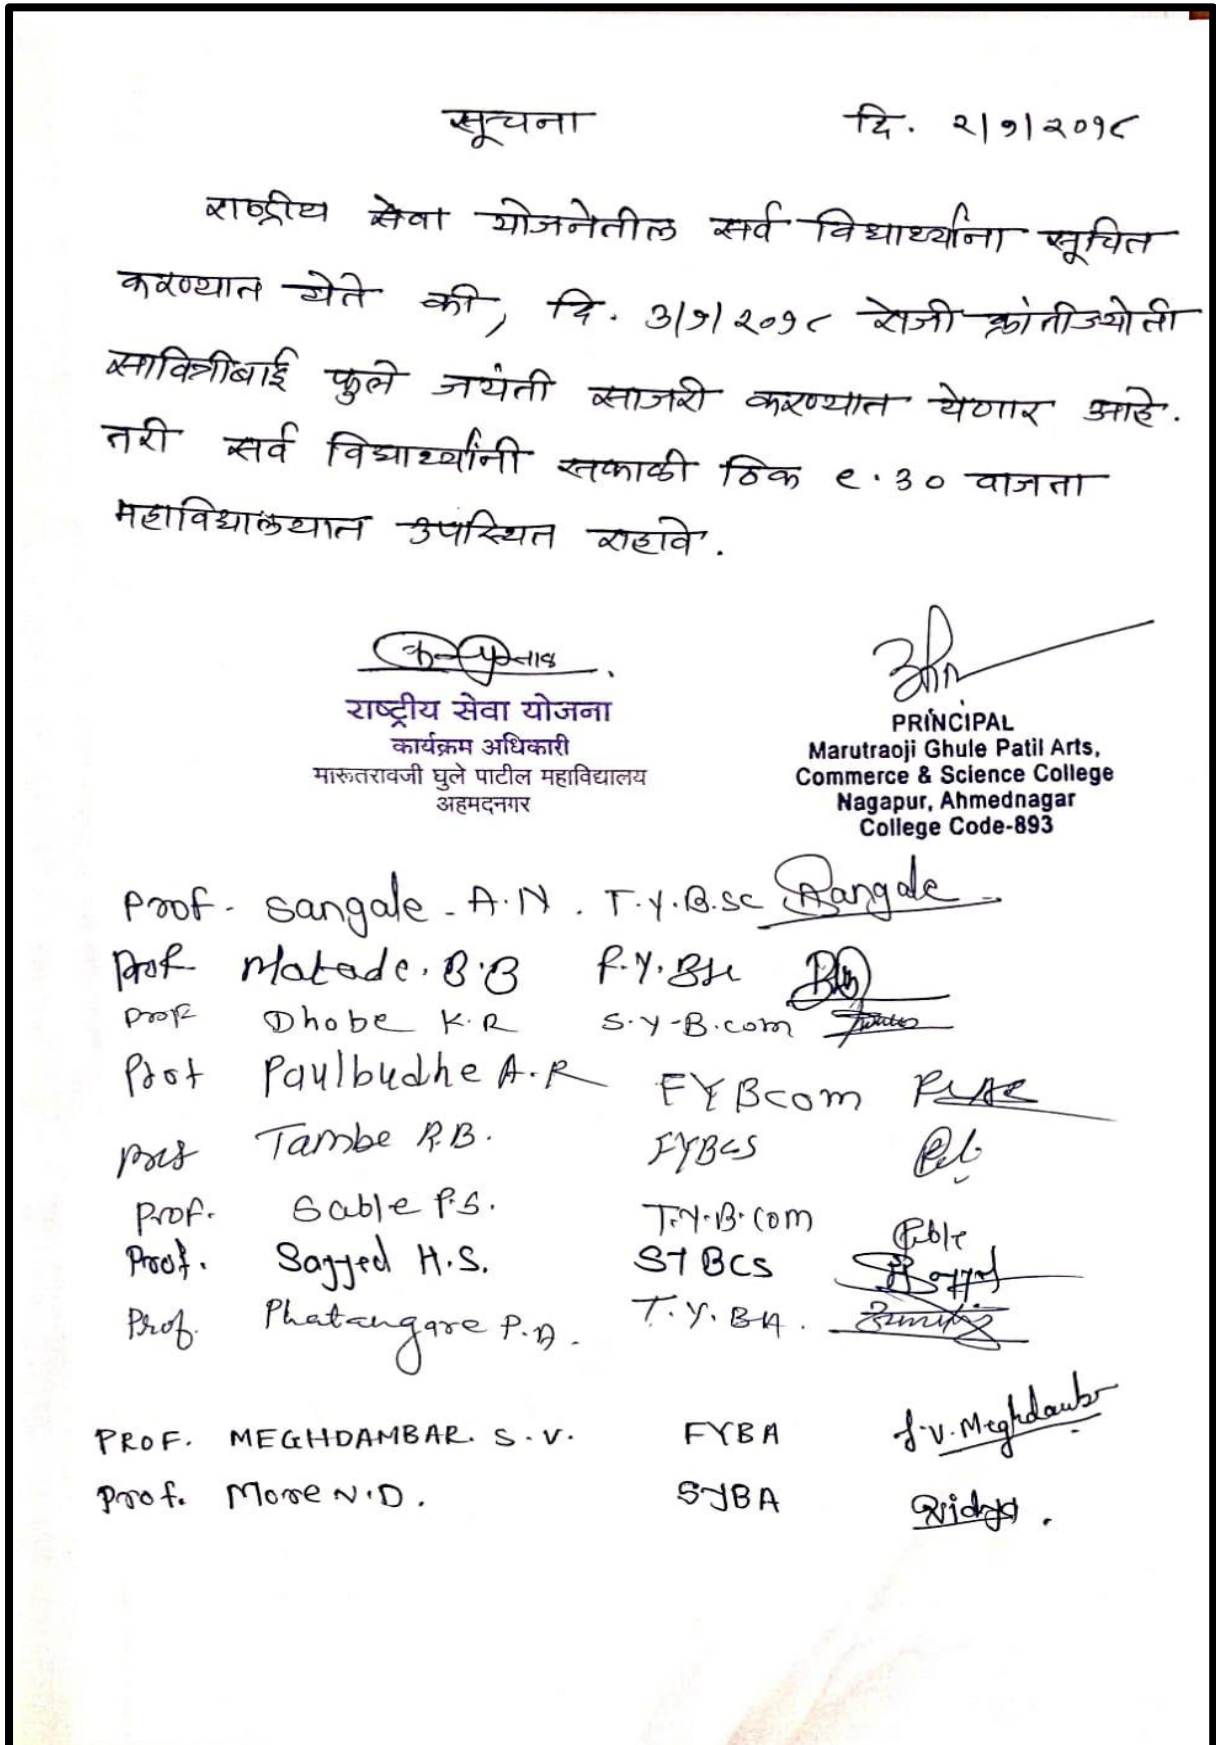 सूचना दि. २/१/२०१८
राष्ट्रीय सेवा योजनेतील सर्व विद्यार्थ्यांना सूचित
करण्यात येते की, दि. ३/१/२०१८ रोजी क्रांतीज्योती
सावित्रीबाई फुले जयंती साजरी करण्यात येणार आहे.
तरी सर्व विद्यार्थ्यांनी सकाळी ठिक ९.३० वाजता
महाविद्यालयात उपस्थित राहावे.
राष्ट्रीय सेवा योजना
कार्यक्रम अधिकारी
मारूतरावजी घुले पाटील महाविद्यालय
अहमदनगर
PRINCIPAL
Marutraoji Ghule Patil Arts,
Commerce & Science College
Nagapur, Ahmednagar
College Code-893
Prof. Sangale - A.N. T.Y.B.SC Sangale
Prof Matade. B.B F.Y.BSc
Prof Dhobe K.R S.Y-B.com
Prof Paulbudhe A.R FYBcom
Prof Tambe R.B. FYBCS
Prof. Sable P.S. T.Y.B.com Sable
Prof. Sayyed H.S. SYBCS
Prof. Phatangare P.A. T.Y.BA.
PROF. MEGHDAMBAR. S.V. FYBA S.V.Meghdambar
Prof. More N.D. SYBA